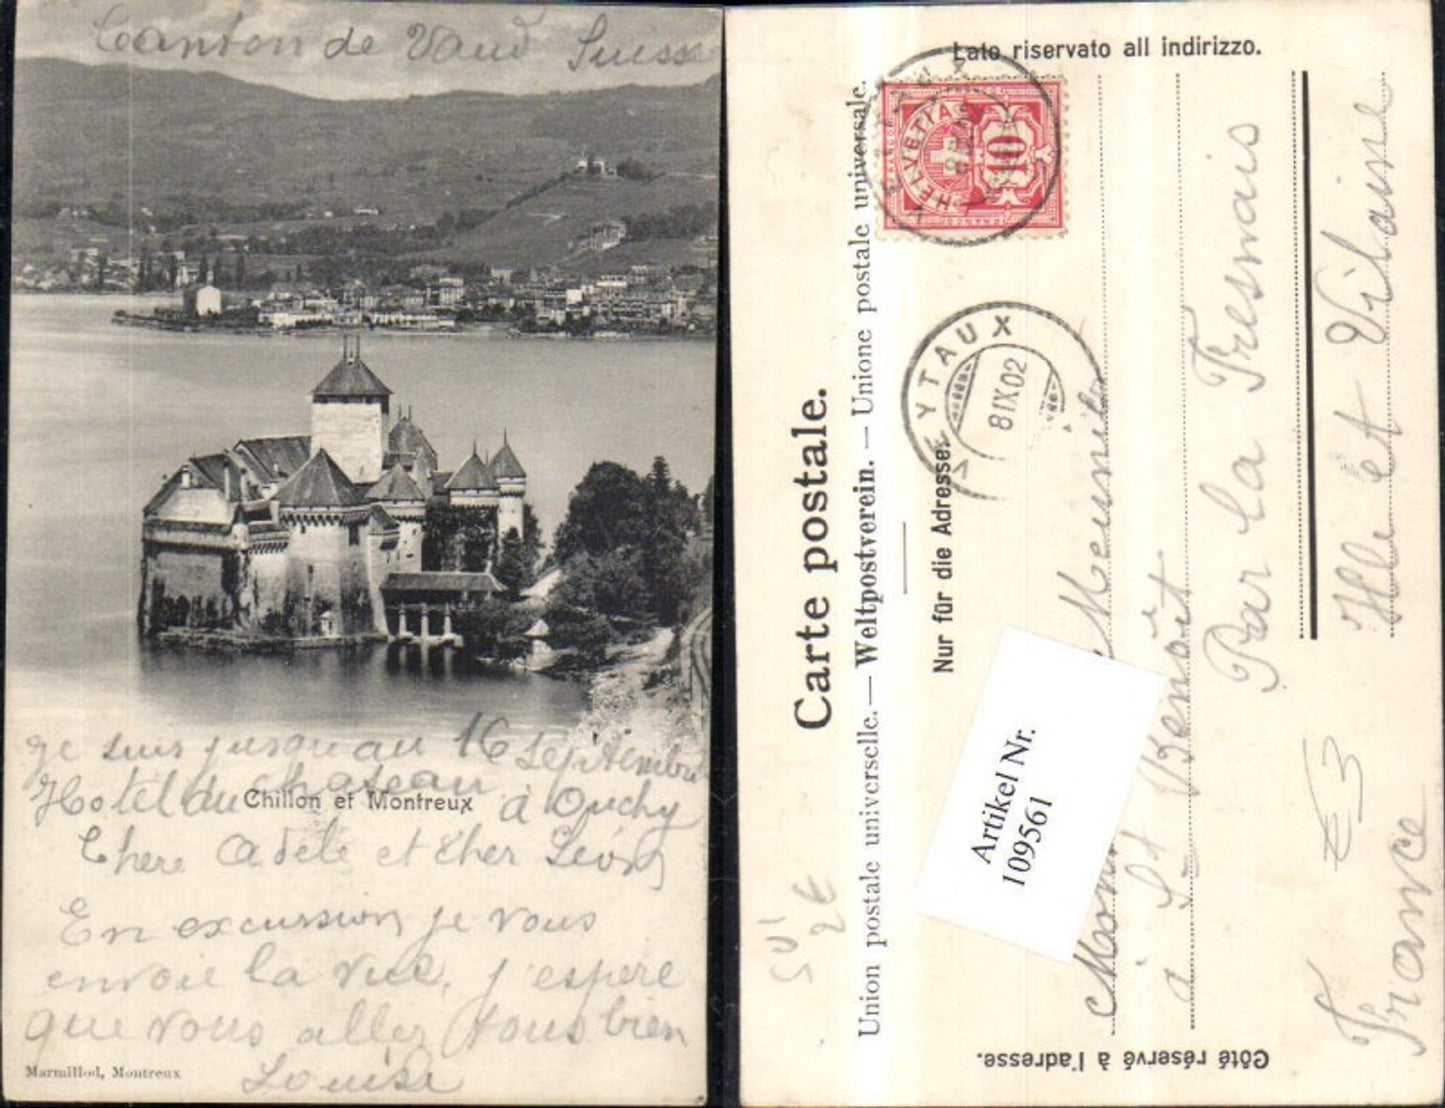 Canton de Vaud Suisse
je suis jusqu au 16 Septembre
Hotel du chateau à Ouchy
Chillon et Montreux
Chere Adele et cher Léon
En excursion je vous
envoie la vue, j'espere
que vous allez tous bien
Louise
Marmillod, Montreux
Lato riservato all indirizzo.
Carte postale.
Union postale universelle. — Weltpostverein. — Unione postale universale.
Nur für die Adresse.
Côté réservé à l'adresse.
HELVETIA
10
FRANCO
VEYTAUX
VEYTAUX
8 IX 02
à St Benoît
Par la Fresnais
Ille et Vilaine
France
Artikel Nr.
109561
€3
2€